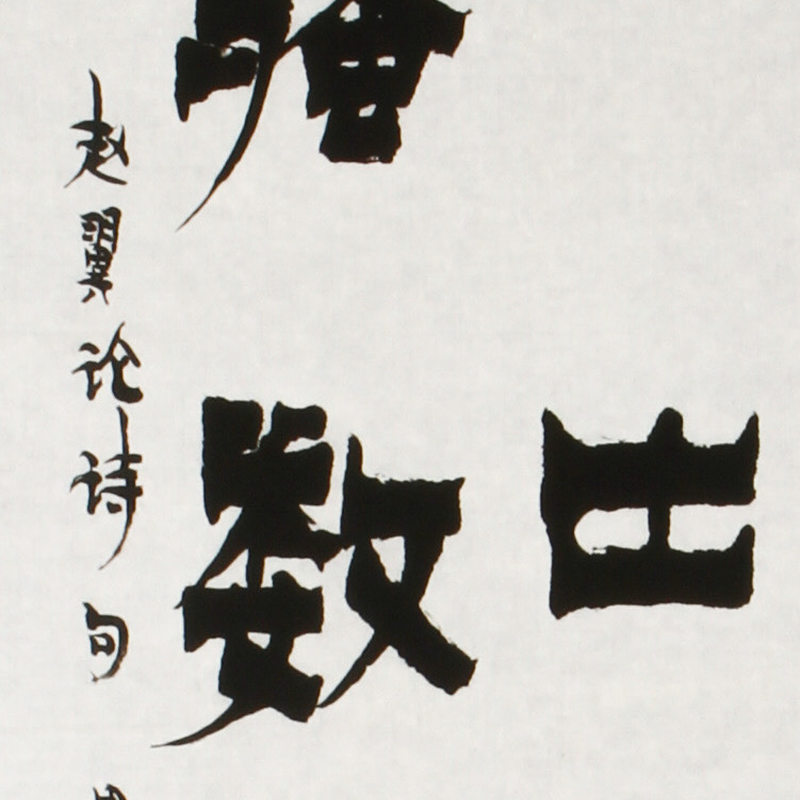 出
骚数
赵翼论诗句